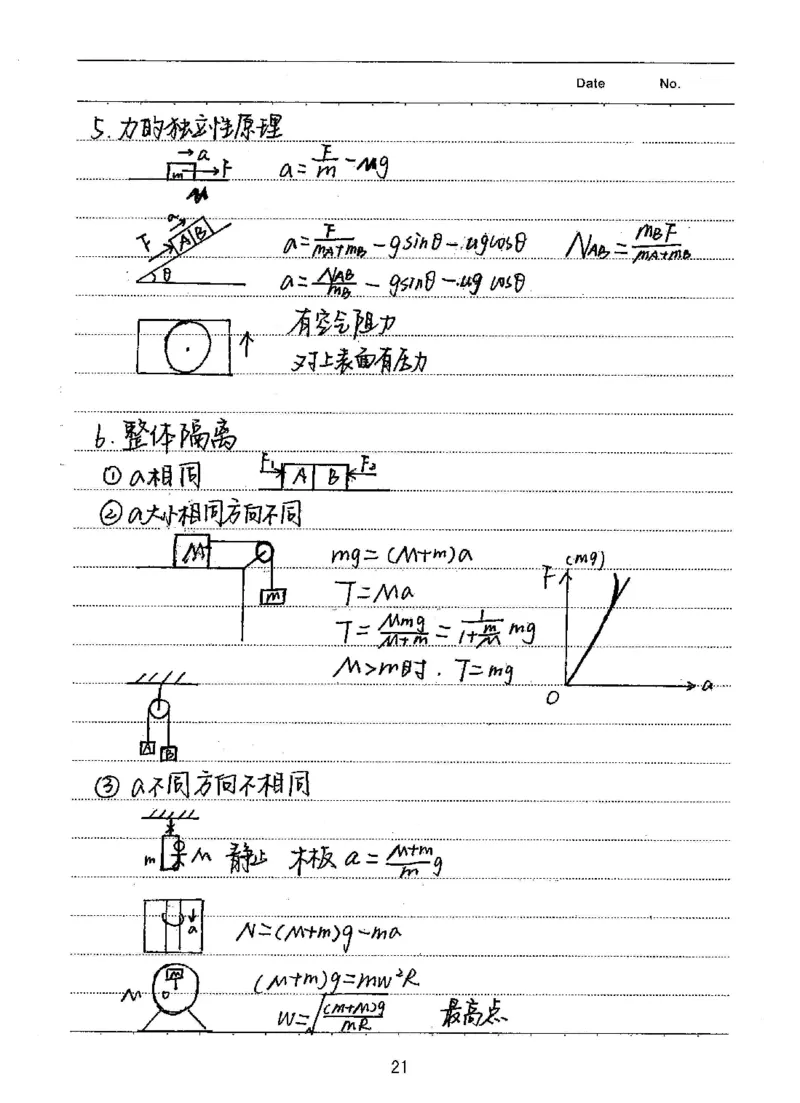 Date No.
5. 力的独立性原理
→a
m F
μ
a = F/m - μg
a
F A B
θ
a = F/(mA+mB) - gsinθ - μgcosθ NAB = mBF/(mA+mB)
a = NAB/mB - gsinθ - μg cosθ
有空气阻力
对上表面有压力
6. 整体隔离
① a相同 F₁ A B F₂
② a大小相同方向不同
M
m
mg = (M+m)a
T = Ma
T = Mmg/(M+m) = 1/(1+m/M) mg
M>m时. T=mg
F (mg)
O a
A B
③ a不同方向不相同
m M 静止 木板 a = (M+m)/m g
a
N=(M+m)g-ma
M m
O
(M+m)g=mw²R
W=√((m+M)g/mR) 最高点
21